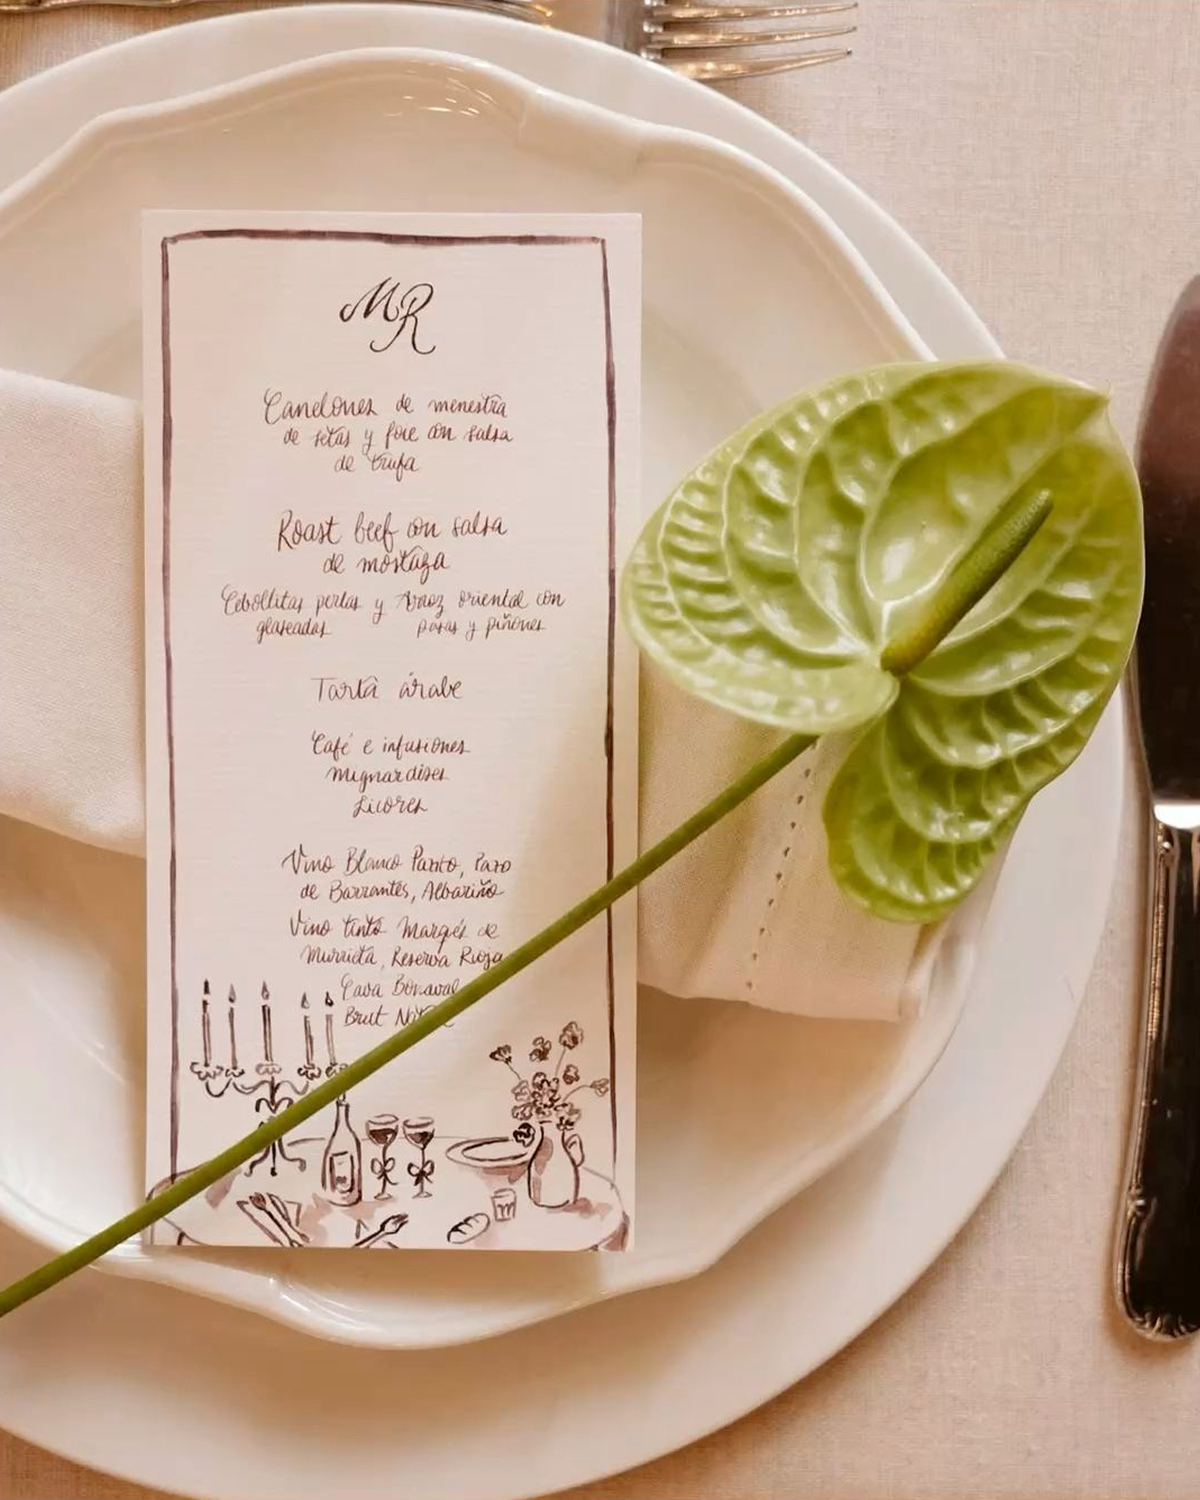 MR
Canelones de menestra
de setas y foie con salsa
de trufa
Roast beef con salsa
de mostaza
Cebollitas perlas y Arroz oriental con
glaseadas pasas y piñones
Tarta árabe
Café e infusiones
Mignardises
Licores
Vino Blanco Pazo
de Barrantes, Albariño
Vino tinto Marqués de
Murrieta, Reserva Rioja
Cava Bonaval
Brut